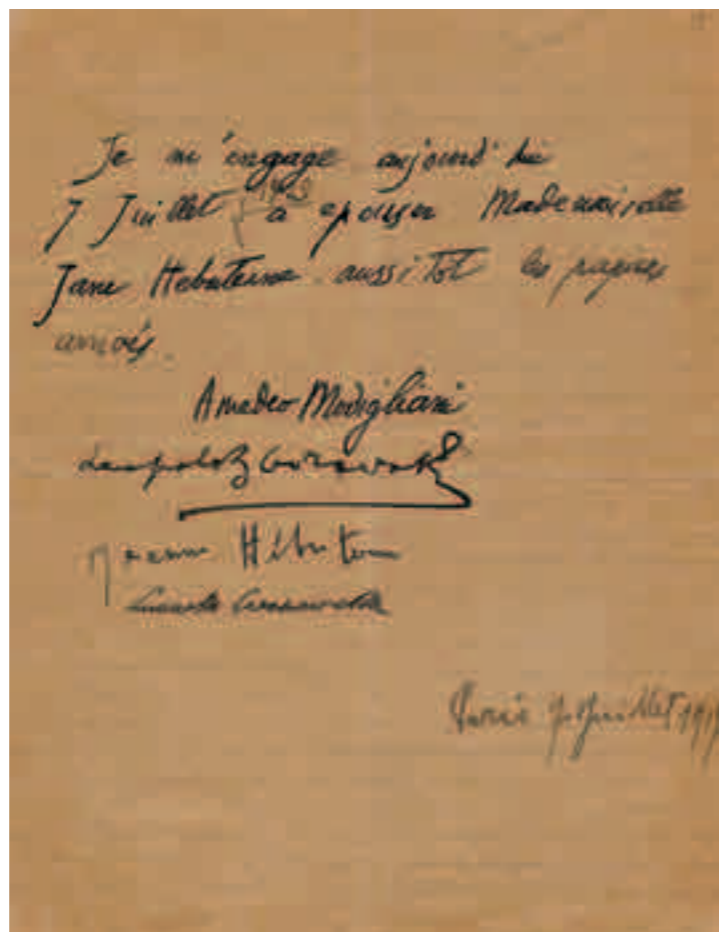 Je m'engage aujourd'hui
7 Juillet 1919 à epouser Mademoiselle
Jane Hebuterne aussitot les papiers
arrivés.
Amedeo Modigliani
Leopold Zborowski
Jeanne Hébuterne
Lunia Czechowska
Paris 7 Juillet 1919